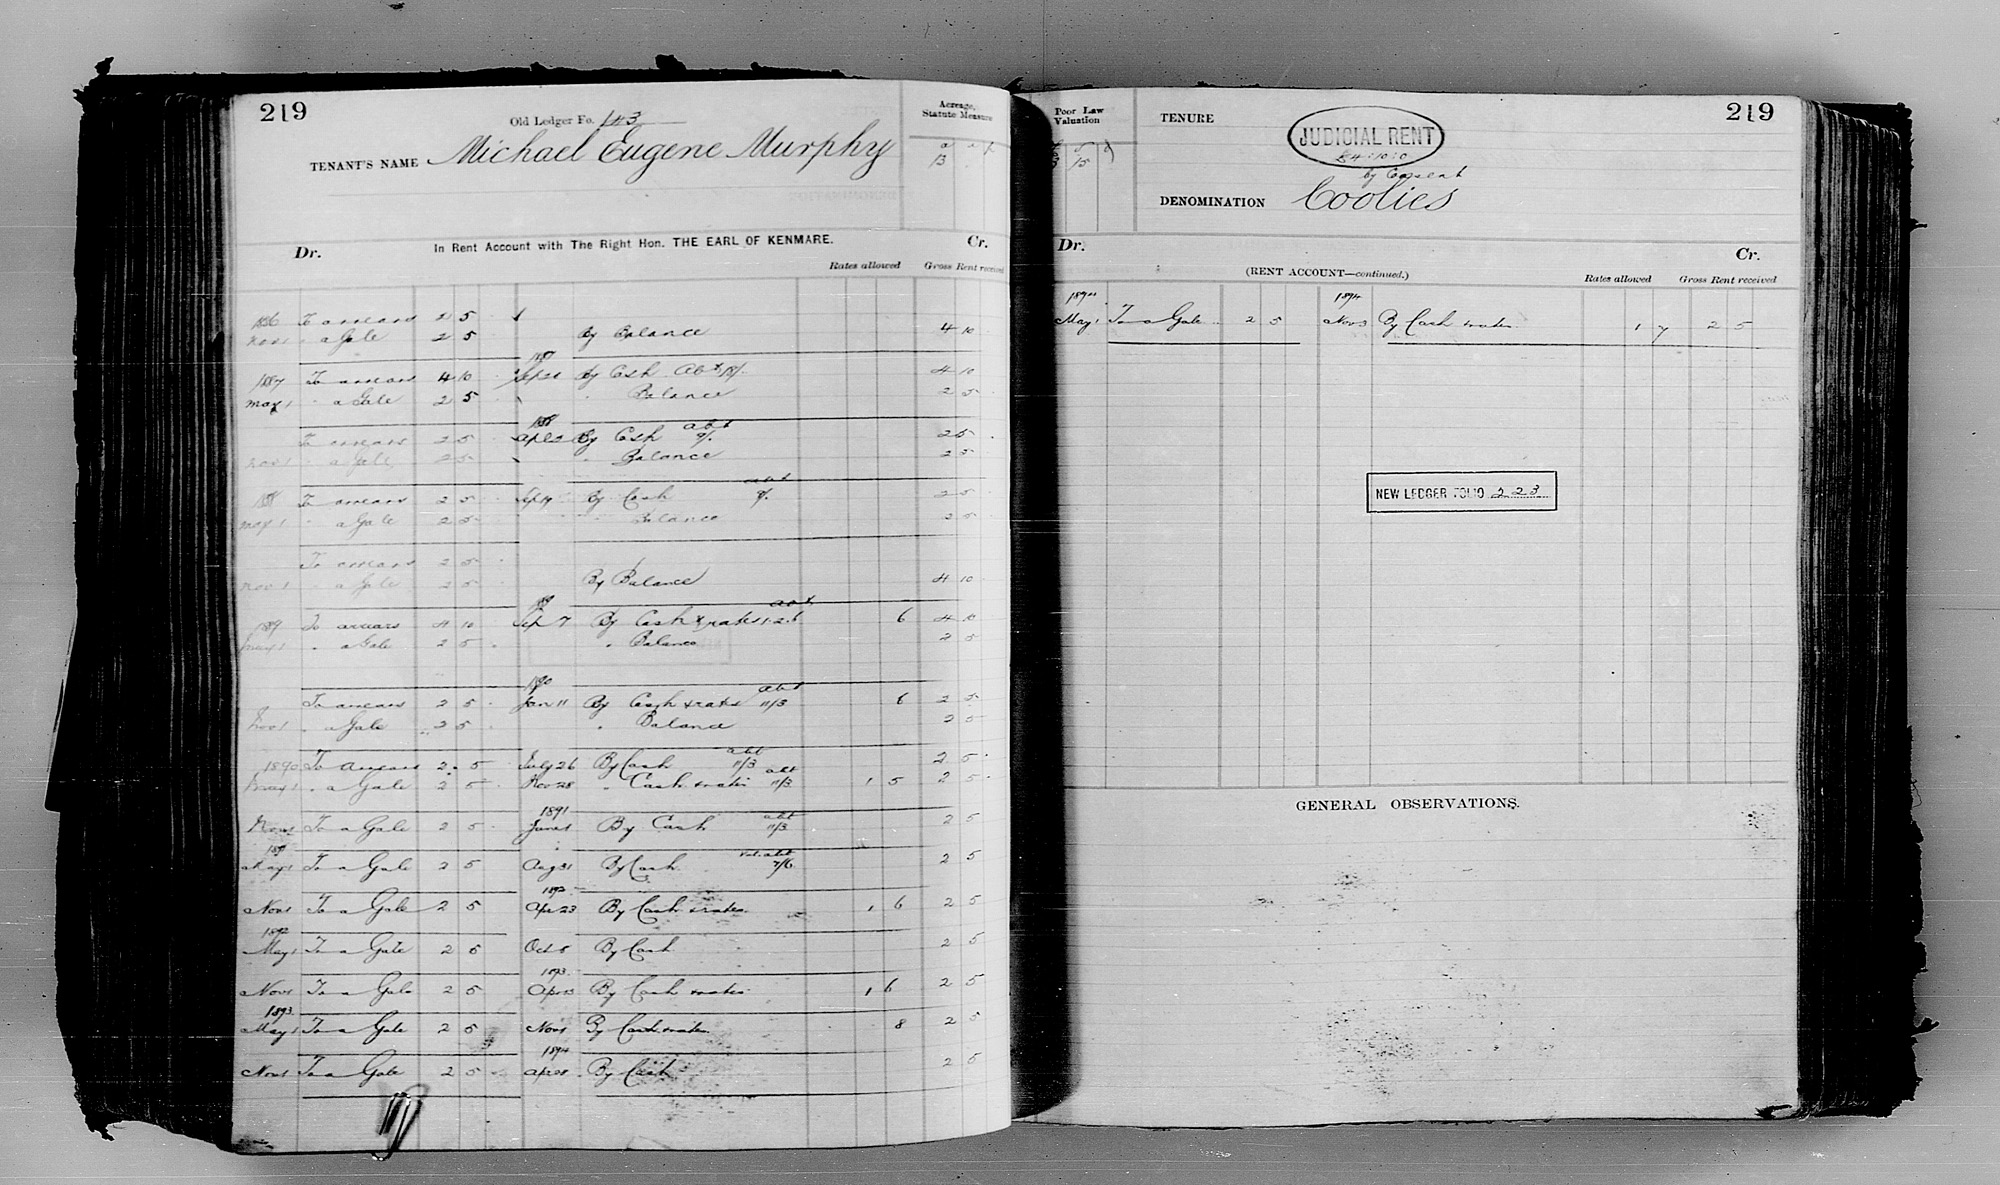 219
Old Ledger Fo. 143
TENANT'S NAME Michael Eugene Murphy
Acreage,
Statute Measure
a r p
13
Dr. In Rent Account with The Right Hon. THE EARL OF KENMARE. Cr.
Rates allowed Gross Rent received
1886 To arrears 2 5
Nov 1 " a Gale 2 5 By Balance 4 10
1887 To arrears 4 10 1887 Sep 21 By Cash Abt 4 10
May 1 " a Gale 2 5 " Balance 2 5
1888 abt
To arrears 2 5 Apl 2 By Cash 9/. 2 5
Nov 1 " a Gale 2 5 " Balance 2 5
abt
1888 To arrears 2 5 Sep 19 By Cash 9/. 2 5
May 1 " a Gale 2 5 " Balance 2 5
To arrears 2 5
Nov 1 " a Gale 2 5 By Balance 4 10
abt
1889 To arrears 4 10 Sep 7 By Cash & rates 1.2.6 6 4 10
May 1 " a Gale 2 5 " Balance 2 5
1890 abt
To arrears 2 5 Jan 11 By Cash & rates 11/3 6 2 5
Nov 1 " a Gale 2 5 " Balance 2 5
abt
1890 To arrears 2 5 July 26 By Cash 11/3 2 5
abt
May 1 " a Gale 2 5 Nov 28 " Cash & rates 11/3 1 5 2 5
1891 abt
Nov 1 To a Gale 2 5 June 1 By Cash 11/3 2 5
1891 Vol. abt
May 1 To a Gale 2 5 Aug 31 By Cash 7/6 2 5
1892
Nov 1 To a Gale 2 5 Apr 23 By Cash & rates 1 6 2 5
1892
May 1 To a Gale 2 5 Oct 5 By Cash 2 5
1893
Nov 1 To a Gale 2 5 Apr 13 By Cash & rates 1 6 2 5
1893
May 1 To a Gale 2 5 Nov 1 By Cash & rates 8 2 5
1894
Nov 1 To a Gale 2 5 Apr 28 By Cash 2 5
Poor Law
Valuation
3 15
TENURE
JUDICIAL RENT
£4:10:0
by Consent
219
DENOMINATION Coolies
Dr. Cr.
(RENT ACCOUNT—continued.)
Rates allowed Gross Rent received
1894 1894
May 1 To a Gale 2 5 Nov 3 By Cash & rates 1 7 2 5
NEW LEDGER FOLIO 223
GENERAL OBSERVATIONS.